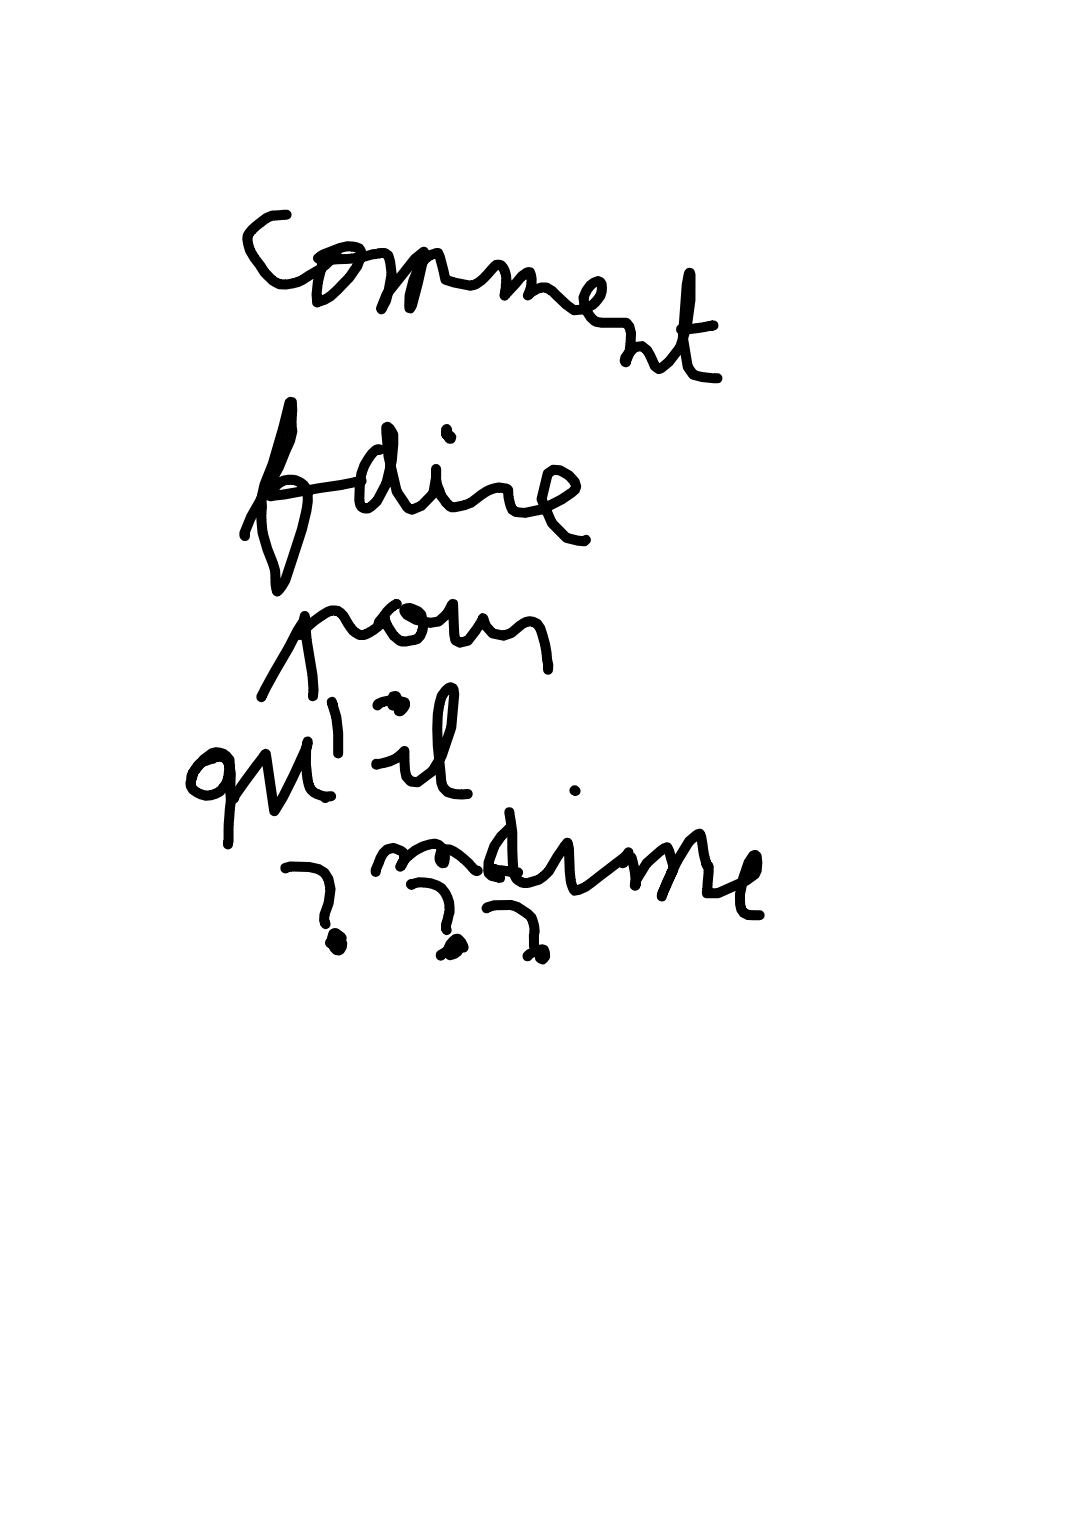 comment
faire
pour
qu'il
m'aime
? ? ?